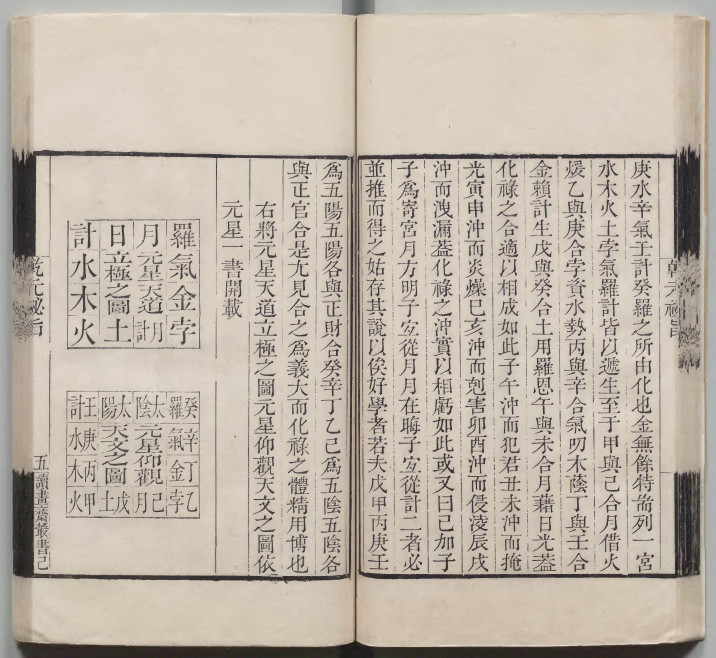 庚水辛氣壬計癸羅之所由化也金無餘特耑列一宮
水木火土孛氣羅計皆以遞生至于甲與己合月借火
煖乙與庚合孛資水勢丙與辛合氣叨木蔭丁與壬合
金賴計生戊與癸合土用羅恩午與未合月藉日光蓋
化祿之合適以相成如此子午沖而犯君丑未沖而掩
光寅申沖而炎燥巳亥沖而剋害卯酉沖而侵淩辰戌
沖而洩漏葢化祿之沖實以相虧如此或又曰己加子
子為寄宮月方明子宐從月月在晦子宐從計二者必
並推而得之姑存其說以俟好學者若夫戊甲丙庚壬
乾元秘旨
為五陽五陽各與正財合癸辛丁乙己為五陰五陰各
與正官合是尢見合之為義大而化祿之體精用博也
右將元星天道立極之圖元星仰觀天文之圖依
元星一書開載
羅氣金孛
月元星天道月計
日立極之圖土
計水木火
癸羅辛氣丁金乙孛
太陰元星仰觀己月
太陽天文之圖戊土
壬計庚水丙木甲火
乾元秘旨
五 讀畫齋叢書己